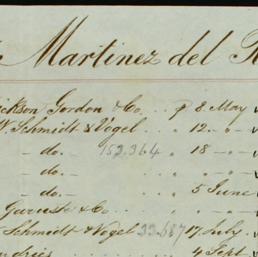 Martinez del
Gordon & Co. . . p 8. May
Schmidt & Vogel . . . 12. - " -
" do. - 152.364 18 - " -
- do. - . . . . " - " -
- do. - . . . . 5 June
& Co. . . . . " - " -
Schmidt & Vogel 33.687 17 July
4 Sept